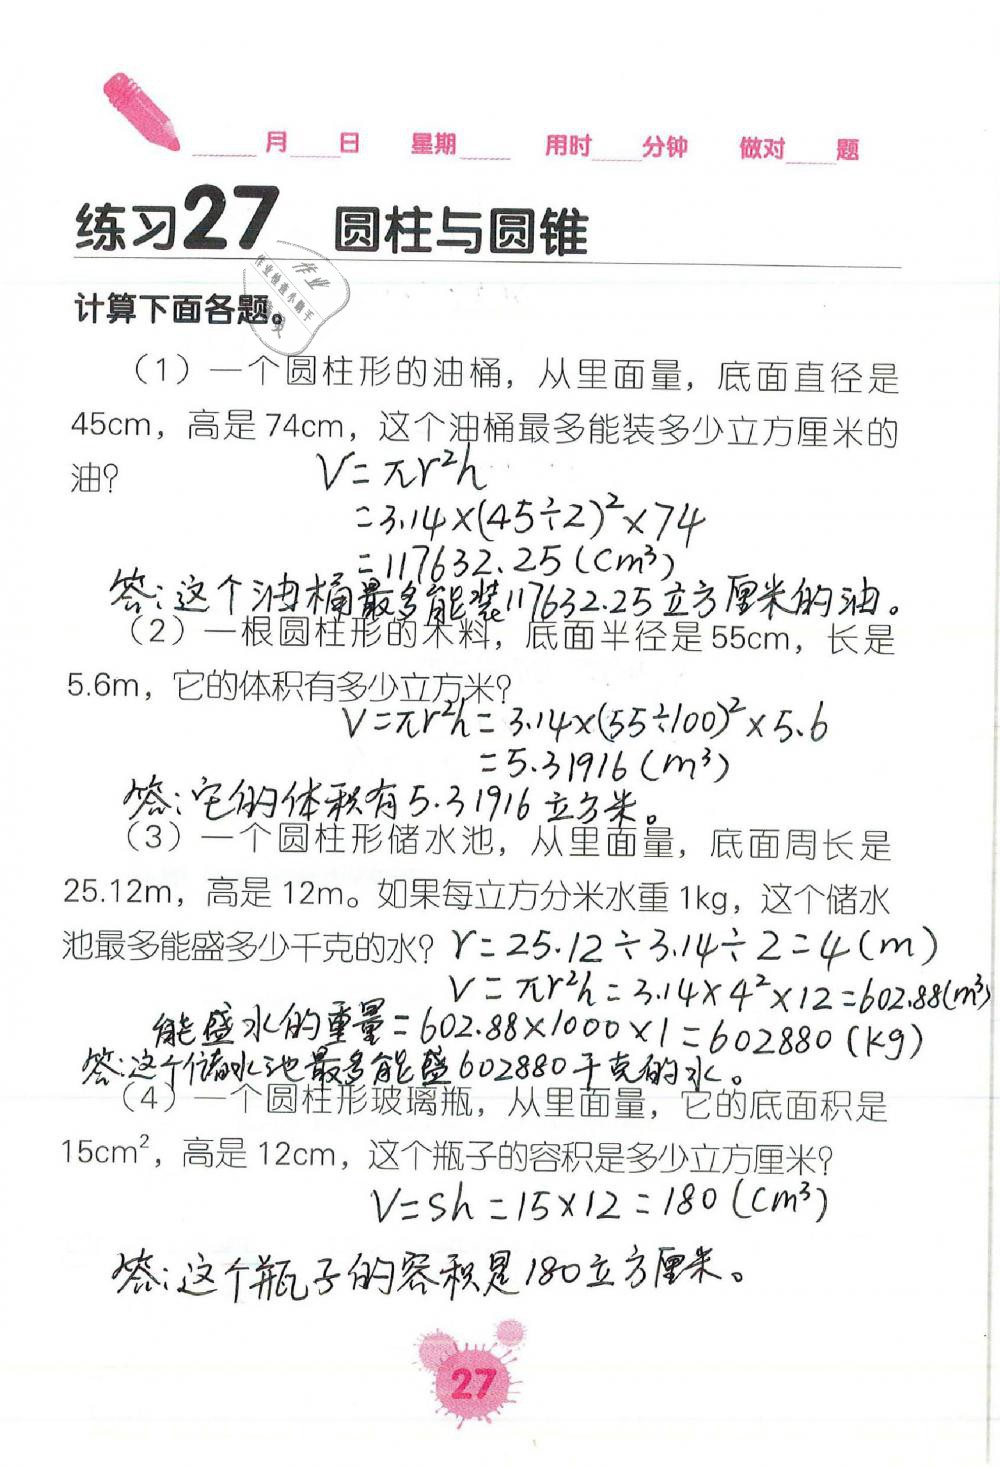 月 日 星期 用时 分钟 做对 题
练习27 圆柱与圆锥
作业
作业检查小助手
计算下面各题。
（1）一个圆柱形的油桶，从里面量，底面直径是
45cm，高是74cm，这个油桶最多能装多少立方厘米的
油？
V=πr²h
=3.14×(45÷2)²×74
=117632.25(cm³)
答:这个油桶最多能装117632.25立方厘米的油。
（2）一根圆柱形的木料，底面半径是55cm，长是
5.6m，它的体积有多少立方米？
V=πr²h=3.14×(55÷100)²×5.6
=5.31916(m³)
答:它的体积有5.31916立方米。
（3）一个圆柱形储水池，从里面量，底面周长是
25.12m，高是12m。如果每立方分米水重1kg，这个储水
池最多能盛多少千克的水？ r=25.12÷3.14÷2=4(m)
V=πr²h=3.14×4²×12=602.88(m³)
能盛水的重量=602.88×1000×1=602880(kg)
答:这个储水池最多能盛602880千克的水。
（4）一个圆柱形玻璃瓶，从里面量，它的底面积是
15cm²，高是12cm，这个瓶子的容积是多少立方厘米？
V=Sh=15×12=180(cm³)
答:这个瓶子的容积是180立方厘米。
27